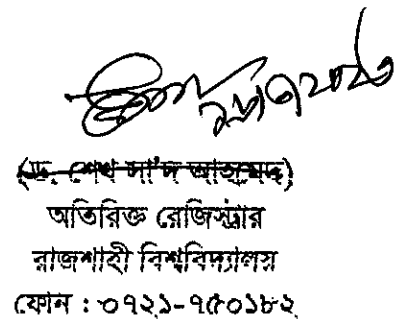 (ড. শেখ সা'দ আহমদ)
অতিরিক্ত রেজিস্ট্রার
রাজশাহী বিশ্ববিদ্যালয়
ফোন : ০৭২১-৭৫০১৮২